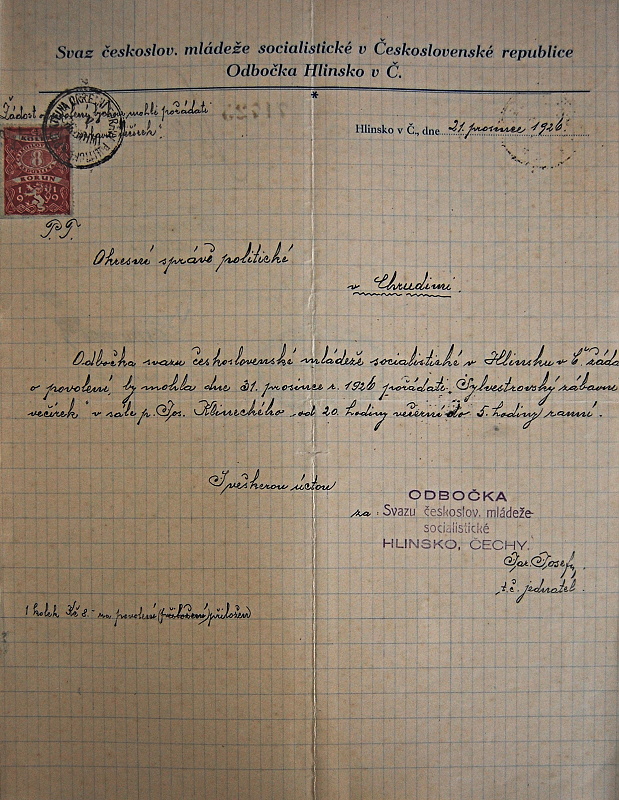 Svaz českoslov. mládeže socialistické v Československé republice
Odbočka Hlinsko v Č.
*
Žádost o povolení bychom mohli pořádati
večírek!
Hlinsko v Č., dne 21. prosince 1926.
8
KORUN
1919
P.T.
Okresní správě politické
v Chrudimi.
Odbočka svazu československé mládeže socialistické v Hlinsku v Č. žádá
o povolení, by mohla dne 31. prosince r. 1926 pořádati „Sylvestrovský zábavný
večírek" v sále p. Jos. Klineckého od 20. hodiny večerní do 5. hodiny ranní.
S veškerou úctou
ODBOČKA
za: Svazu českoslov. mládeže
socialistické
HLINSKO, ČECHY.
Josef
t.č. jednatel.
1 kolek Kč 8.- na povolení (přiložen)